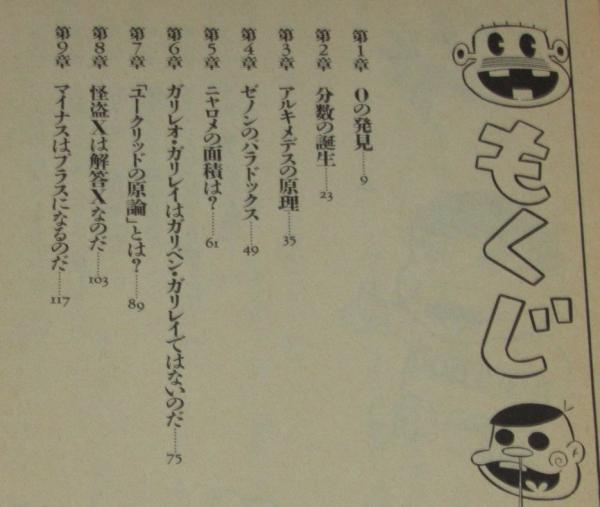 もくじ
第1章 0の発見……9
第2章 分数の誕生……23
第3章 アルキメデスの原理……35
第4章 ゼノンのパラドックス……49
第5章 ニャロメの面積は?……61
第6章 ガリレオ・ガリレイはガリベン・ガリレイではないのだ……75
第7章 「ユークリッドの原論」とは?……89
第8章 怪盗Xは解答Xなのだ……103
第9章 マイナスはプラスになるのだ……117